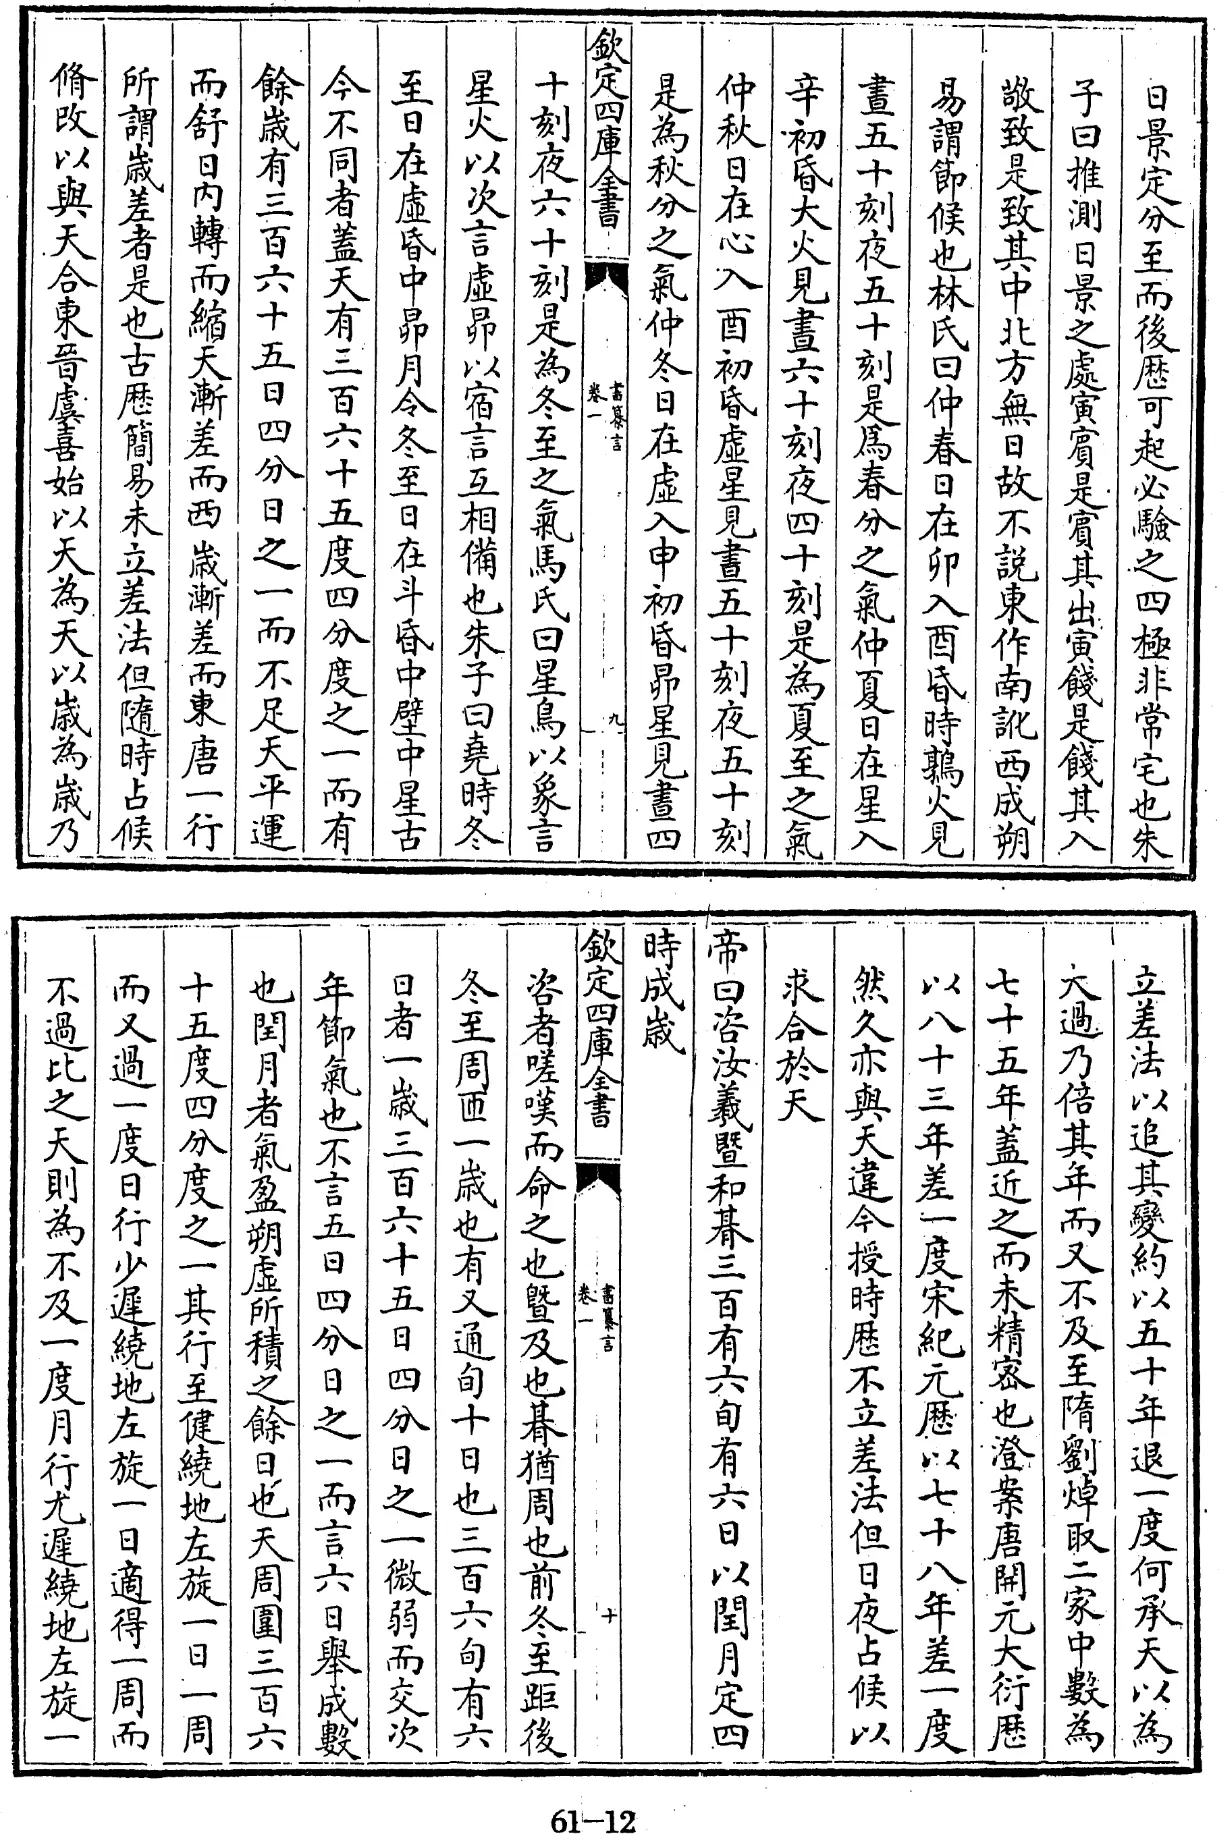 日景定分至而後歴可起必驗之四極非常宅也朱
子曰推測日景之處寅賓是賓其出寅餞是餞其入
敬致是致其中北方無日故不説東作南訛西成朔
易謂節候也林氏曰仲春日在卯入酉昏時鶉火見
晝五十刻夜五十刻是爲春分之氣仲夏日在星入
辛初昏大火見晝六十刻夜四十刻是為夏至之氣
仲秋日在心入酉初昏虛星見晝五十刻夜五十刻
是為秋分之氣仲冬日在虛入申初昏昴星見晝四
欽定四庫全書
書纂言
卷一
九
十刻夜六十刻是為冬至之氣馬氏曰星鳥以象言
星火以次言虛昴以宿言互相備也朱子曰堯時冬
至日在虛昏中昴月令冬至日在斗昏中壁中星古
今不同者蓋天有三百六十五度四分度之一而有
餘歲有三百六十五日四分日之一而不足天平運
而舒日內轉而縮天漸差而西歲漸差而東唐一行
所謂歲差者是也古歴簡易未立差法但隨時占候
脩改以與天合東晉虞喜始以天為天以歲為歲乃
立差法以追其變約以五十年退一度何承天以為
太過乃倍其年而又不及至隋劉焯取二家中數為
七十五年蓋近之而未精密也澄案唐開元大衍歴
以八十三年差一度宋紀元歴以七十八年差一度
然久亦與天違今授時歴不立差法但日夜占候以
求合於天
帝曰咨汝羲暨和朞三百有六旬有六日以閏月定四
時成歲
欽定四庫全書
書纂言
卷一
十
咨者嗟嘆而命之也曁及也朞猶周也前冬至距後
冬至周匝一歲也有又通旬十日也三百六旬有六
日者一歲三百六十五日四分日之一微弱而交次
年節氣也不言五日四分日之一而言六日舉成數
也閏月者氣盈朔虛所積之餘日也天周圍三百六
十五度四分度之一其行至健繞地左旋一日一周
而又過一度日行少遲繞地左旋一日適得一周而
不過比之天則為不及一度月行尤遲繞地左旋一
61-12